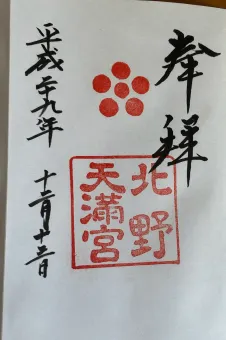 奉拝
北野
天満宮
平成二十九年
十二月十三日